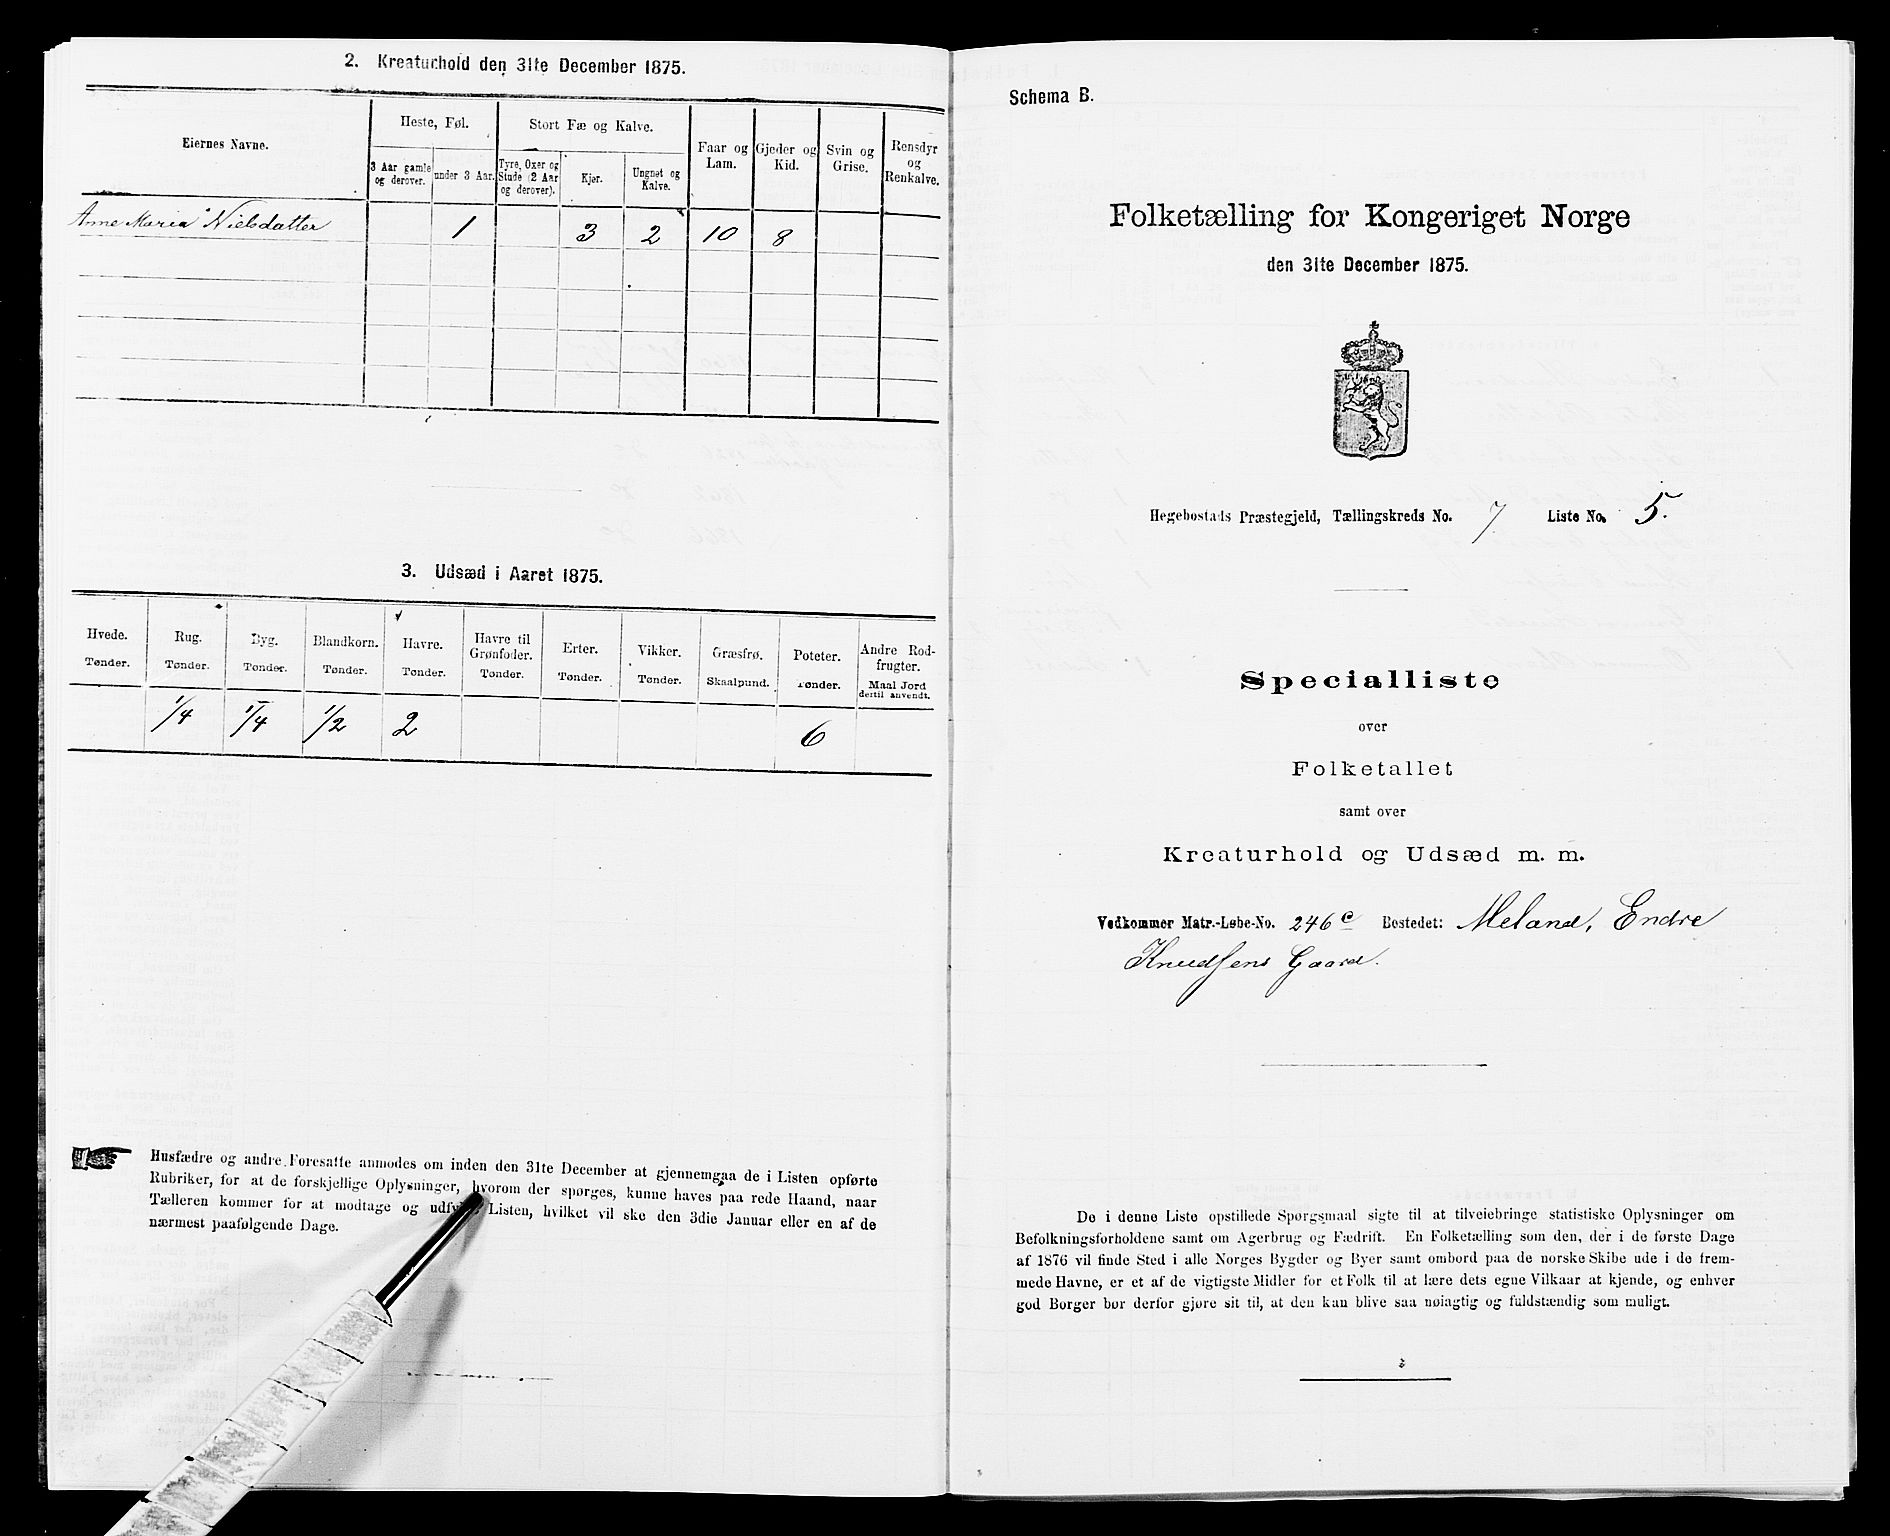 2. Kreaturhold den 31te December 1875.
Eiernes Navne.
Heste, Føl.
Stort Fæ og Kalve.
Faar og Lam.
Gjeder og Kid.
Svin og Grise.
Rensdyr og Renkalve.
3 Aar gamle og derover.
under 3 Aar.
Tyre, Oxer og Stude (2 Aar og derover).
Kjør.
Ungnet og Kalve.
Anne Maria Nielsdatter 1 3 2 10 8
3. Udsæd i Aaret 1875.
Hvede. Tønder.
Rug. Tønder.
Byg. Tønder.
Blandkorn. Tønder.
Havre. Tønder.
Havre til Grønfoder. Tønder.
Erter. Tønder.
Vikker. Tønder.
Græsfrø. Skaalpund.
Poteter. Tønder.
Andre Rodfrugter. Maal Jord dertil anvendt.
1/4 1/4 1/2 2 6
Husfædre og andre Foresatte anmodes om inden den 31te December at gjennemgaa de i Listen opførte
Rubriker, for at de forskjellige Oplysninger, hvorom der spørges, kunne haves paa rede Haand, naar
Tælleren kommer for at modtage og udfylde Listen, hvilket vil ske den 3die Januar eller en af de
nærmest paafølgende Dage.
Schema B.
Folketælling for Kongeriget Norge
den 31te December 1875.
Hegebostads Præstegjeld, Tællingskreds No. 7. Liste No. 5.
Specialliste
over
Folketallet
samt over
Kreaturhold og Udsæd m. m.
Vedkommer Matr.-Løbe-No. 246c Bostedet: Meland, Endre
Knudsens Gaard.
De i denne Liste opstillede Spørgsmaal sigte til at tilveiebringe statistiske Oplysninger om
Befolkningsforholdene samt om Agerbrug og Fædrift. En Folketælling som den, der i de første Dage
af 1876 vil finde Sted i alle Norges Bygder og Byer samt ombord paa de norske Skibe ude i de frem-
mede Havne, er et af de vigtigste Midler for et Folk til at lære dets egne Vilkaar at kjende, og enhver
god Borger bør derfor gjøre sit til, at den kan blive saa nøiagtig og fuldstændig som muligt.